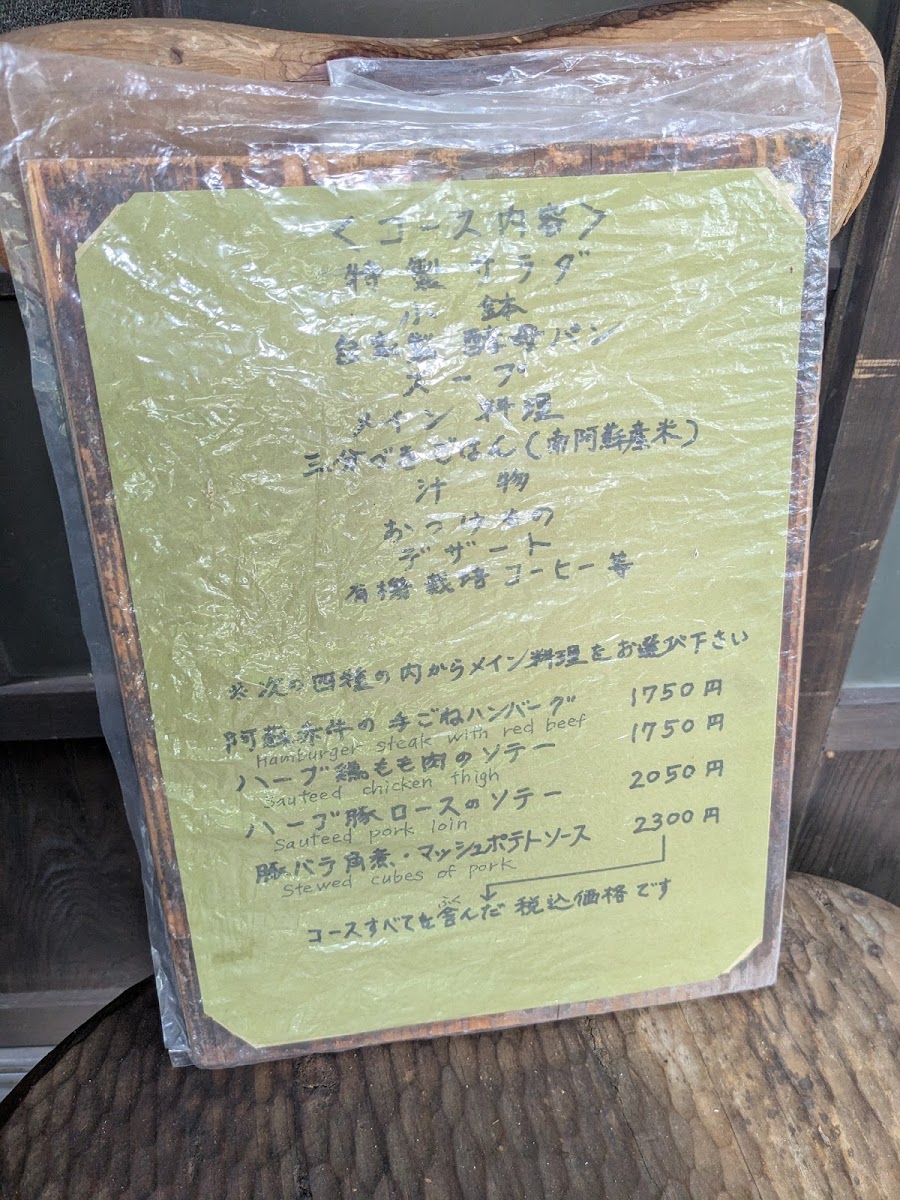 <コース内容>
特製サラダ
小鉢
自家製 酵母パン
スープ
メイン 料理
三分づきごはん(南阿蘇産米)
汁 物
おつけもの
デザート
有機栽培コーヒー等
※次の四種の内からメイン料理をお選び下さい
阿蘇赤牛の手ごねハンバーグ 1750円
Hamburger steak with red beef
ハーブ鶏もも肉のソテー 1750円
Sauteed chicken thigh
ハーブ豚ロースのソテー 2050円
Sauteed pork loin
豚バラ角煮・マッシュポテトソース 2300円
Stewed cubes of pork
ふく
コースすべてを含んだ 税込価格です